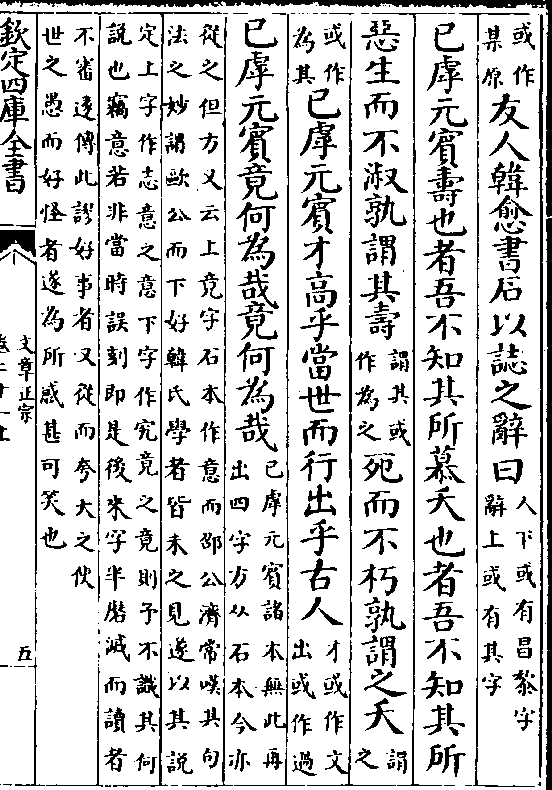 或作某原友人韓愈書石以誌之辭曰人下或有昌黎字辭上或有其字
已虖元賓壽也者吾不知其所慕夭也者吾不知其所
惡生而不淑孰謂其壽謂其或作為之死而不朽孰謂之夭謂之
或作為其已虖元賓才高乎當世而行出乎古人才或作文出或作過
已虖元賓竟何為哉竟何為哉已虖元賓諸本無此再出四字方从石本今亦
從之但方又云上竟字石本作意而邵公濟常嘆其句
法之妙謂歐公而下好韓氏學者皆未之見遂以其説
定上字作志意之意下字作究竟之竟則予不識其何
説也竊意若非當時誤刻即是後來字半磨滅而讀者
不審遂傳此謬好事者又從而夸大之使
世之愚而好怪者遂為所惑甚可笑也
欽定四庫全書
文章正宗
五